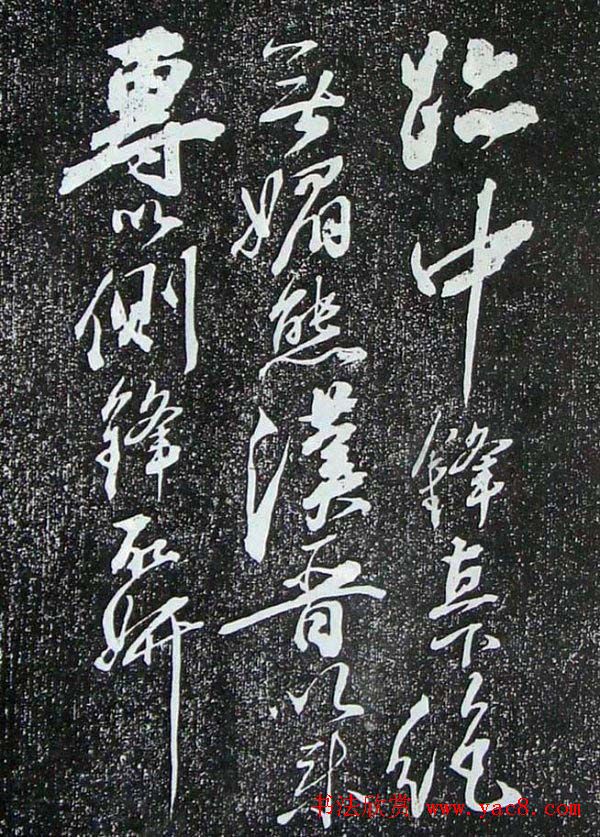 中鋒直下絕
無媚態漢晉以來
專以側鋒取妍
书法欣赏 www.yac8.com